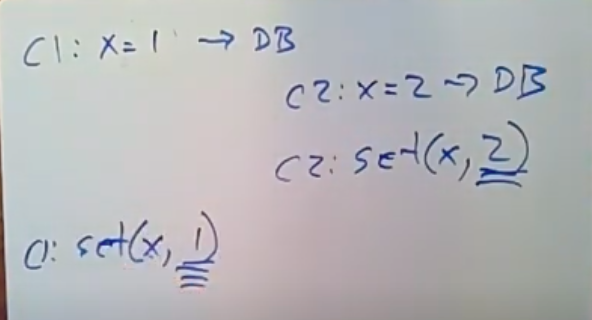 C1: x=1 → DB
C2: x=2 → DB
C2: set(x, 2)
C1: set(x, 1)